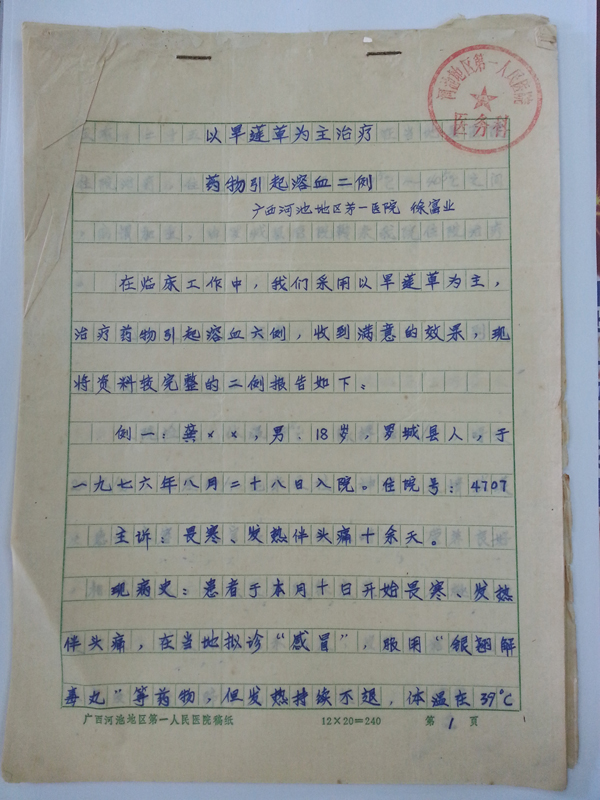 河池地区第一人民医院
医务科
以旱莲草为主治疗
药物引起溶血二例
广西河池地区第一医院 徐富业
在临床工作中，我们采用以旱莲草为主，
治疗药物引起溶血六例，收到满意的效果，现
将资料较完整的二例报告如下。
例一：龚××，男．18岁，罗城县人，于
一九七六年八月二十八日入院。住院号：4707
主诉：畏寒、发热伴头痛十余天。
现病史：患者于本月十日开始畏寒、发热
伴头痛，在当地拟诊“感冒”，服用“银翘解
毒丸”等药物，但发热持续不退，体温在39℃
广西河池地区第一人民医院稿纸 12×20=240 第 1 页